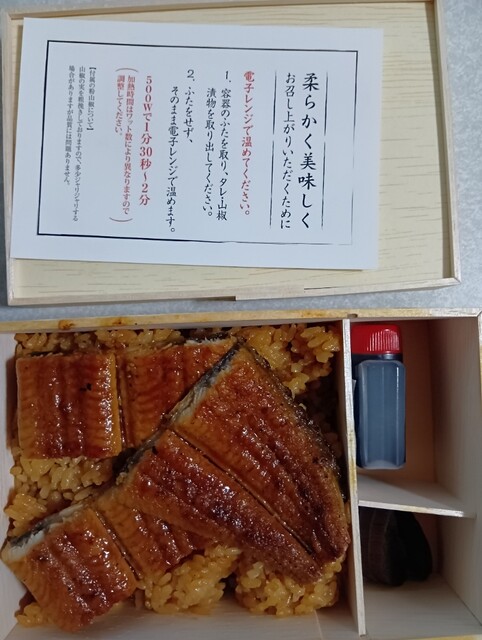 柔らかく美味しく
お召し上がりいただくために
電子レンジで温めてください。
1、容器のふたを取り、タレ・山椒
漬物を取り出してください。
2、ふたをせず、
そのまま電子レンジで温めます。
500Wで1分30秒～2分
(加熱時間はワット数により異なりますので
調整してください。)
【付属の粉山椒について】
山椒の実を粗挽きしておりますので、多少ジャリジャリする
場合がありますが品質には問題ありません。